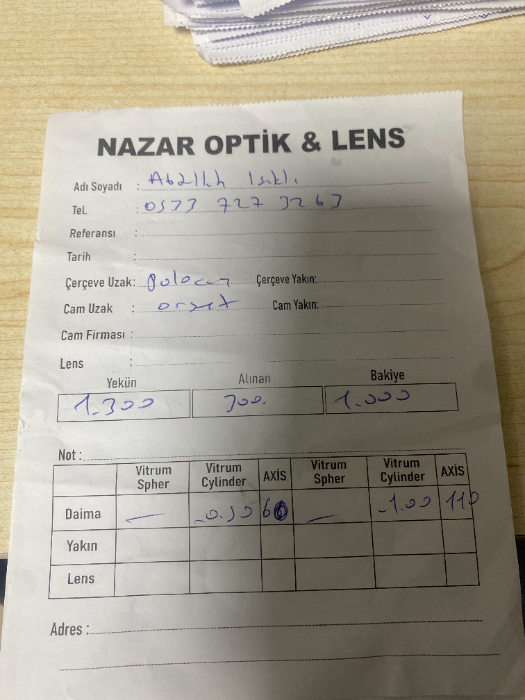 NAZAR OPTİK & LENS
Adı Soyadı : Abdllh Işıklı
Tel. : 0533 727 3263
Referansı :
Tarih :
Çerçeve Uzak: Çerçeve Yakın:
Cam Uzak : Cam Yakın:
Cam Firması :
Lens :
Yekün Alınan Bakiye
1.300 300. 1.000
Not :
Vitrum Spher Vitrum Cylinder AXİS Vitrum Spher Vitrum Cylinder AXİS
Daima — -0.50 60 — -1.00 110
Yakın
Lens
Adres :